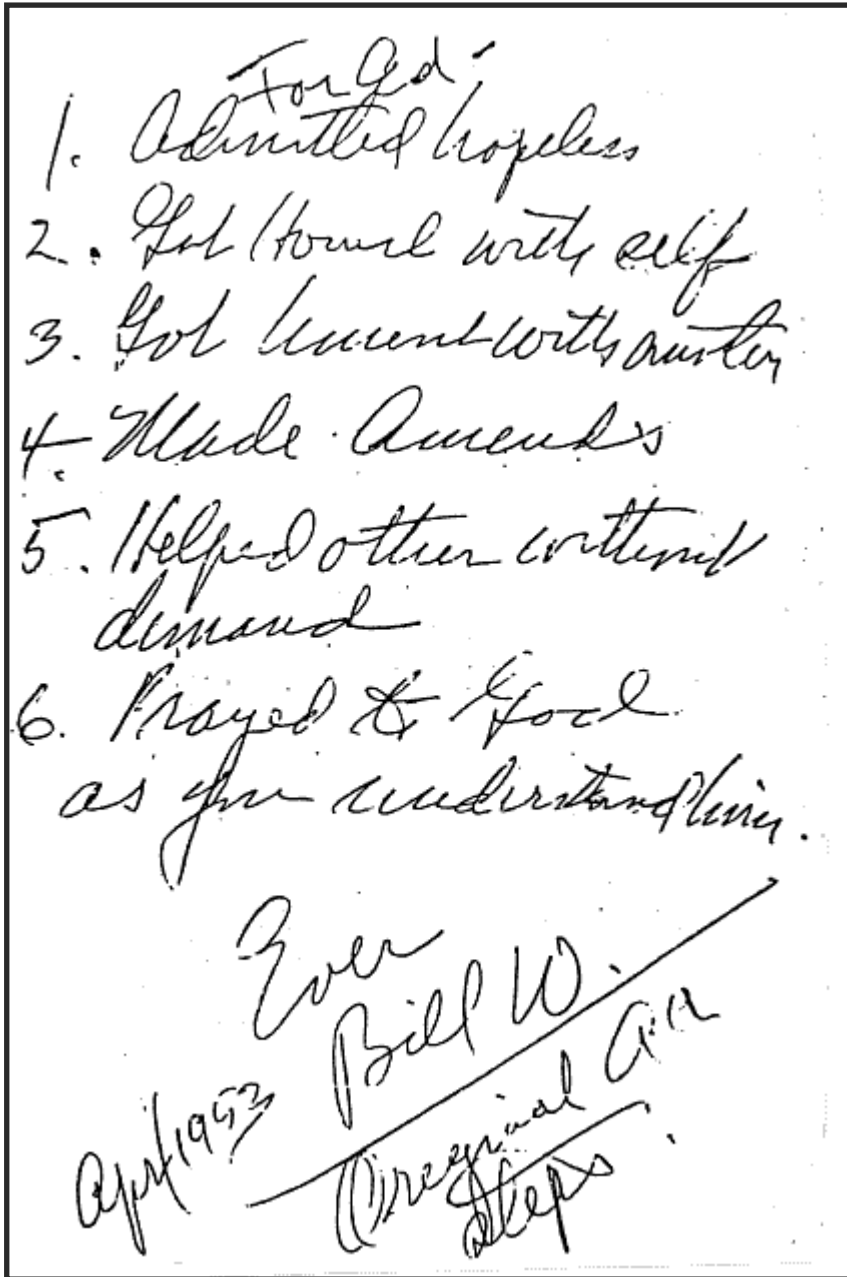 For Ed -
1. Admitted hopeless
2. Got honest with self
3. Got honest with another
4. Made Amends
5. Helped other without
demand
6. Prayed to God
as you understand him.
Ever
Bill W.
April/1953
Original AA
Steps